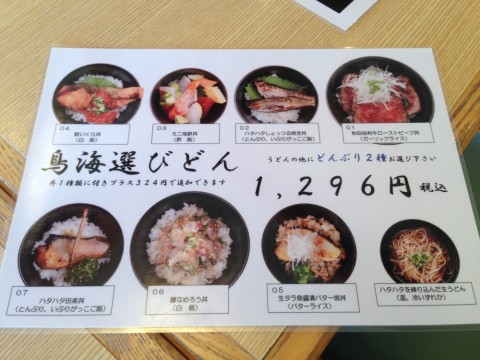 04
鮭いくら丼
(白 飯)
03
ミニ海鮮丼
(酢 飯)
02
ハタハタしょっつる焼き丼
(とんぶり、いぶりがっこご飯)
01
秋田由利牛ローストビーフ丼
(ガーリックライス)
鳥海選びどん
うどんの他にどんぶり2種お選び下さい
丼1種類に付きプラス324円で追加できます
1,296円 税込
07
ハタハタ田楽丼
(とんぶり、いぶりがっこご飯)
06
鯵なめろう丼
(白 飯)
05
生タラ魚醤漬バター焼丼
(バターライス)
ハタハタを練り込んだ生うどん
(温、冷いずれか)